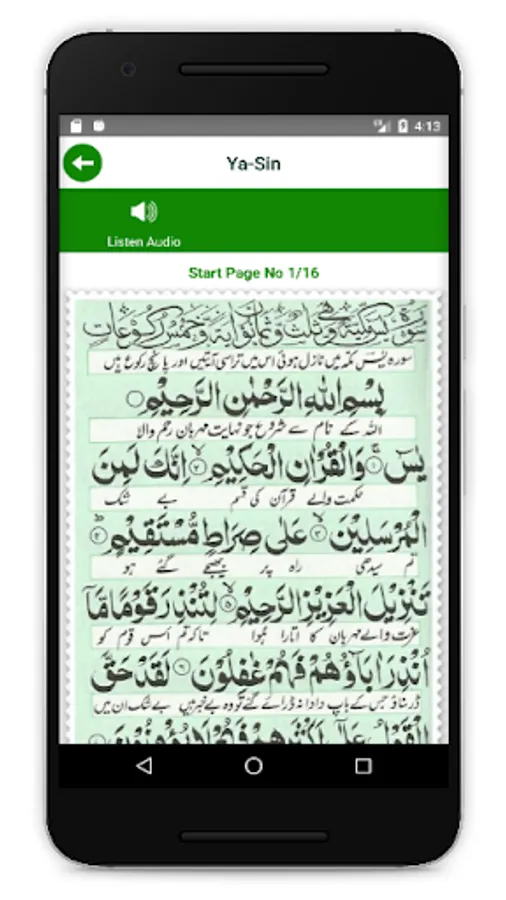 4:13
Ya-Sin
Listen Audio
Start Page No 1/16
سورة يس مكية وهي ثلث وثمانون اية وخمس ركوعات
سورہ یٰس مکہ میں نازل ہوئی اس میں تراسی آیتیں اور پانچ رکوع ہیں
بِسْمِ اللهِ الرَّحْمٰنِ الرَّحِيْمِ
اللہ کے نام سے شروع جو نہایت مہربان رحم والا
يٰسٓ ۱ وَالْقُرْاٰنِ الْحَكِيْمِ ۲ اِنَّكَ لَمِنَ
حکمت والے قرآن کی قسم بے شک
الْمُرْسَلِيْنَ ۳ عَلٰى صِرَاطٍ مُّسْتَقِيْمٍ ۴
تم سیدھی راہ پر بھیجے گئے ہو
تَنْزِيْلَ الْعَزِيْزِ الرَّحِيْمِ ۵ لِتُنْذِرَ قَوْمًا مَّآ
عزت والے مہربان کا اتارا ہوا تاکہ تم اس قوم کو
اُنْذِرَ اٰبَآؤُهُمْ فَهُمْ غٰفِلُوْنَ ۶ لَقَدْ حَقَّ
ڈر سناؤ جس کے باپ دادا نہ ڈرائے گئے تو وہ بے خبر ہیں بے شک ان میں
الْقَوْلُ عَلٰٓى اَكْثَرِهِمْ فَهُمْ لَا يُؤْمِنُوْنَ